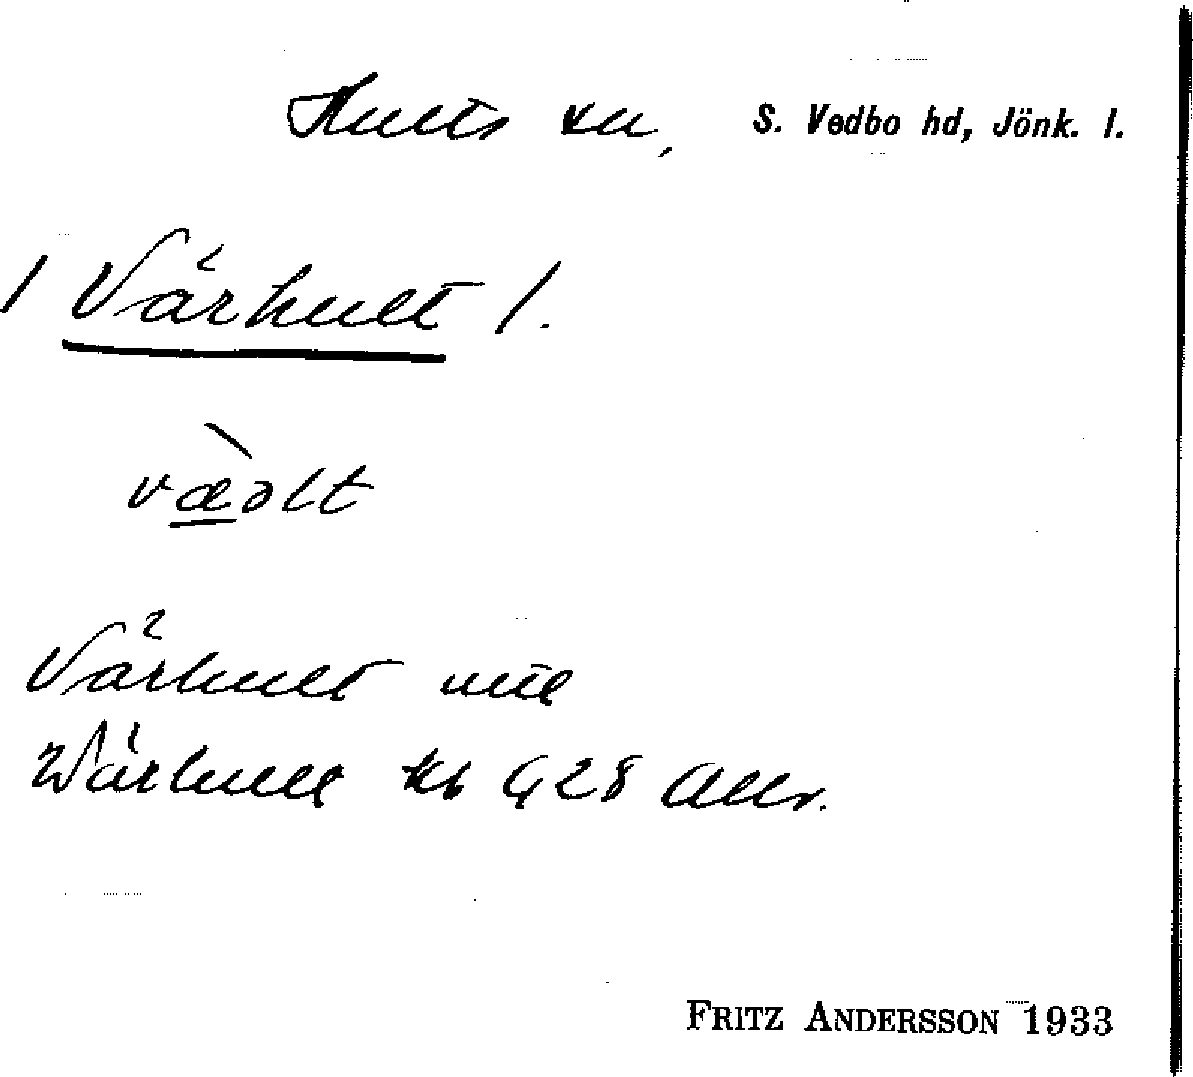 Hults sn, S. Vedbo hd, Jönk. l.
/ Vårhult /.
vædlt
Vårhult
Wårhult kb G 28 Allv.
FRITZ ANDERSSON 1933